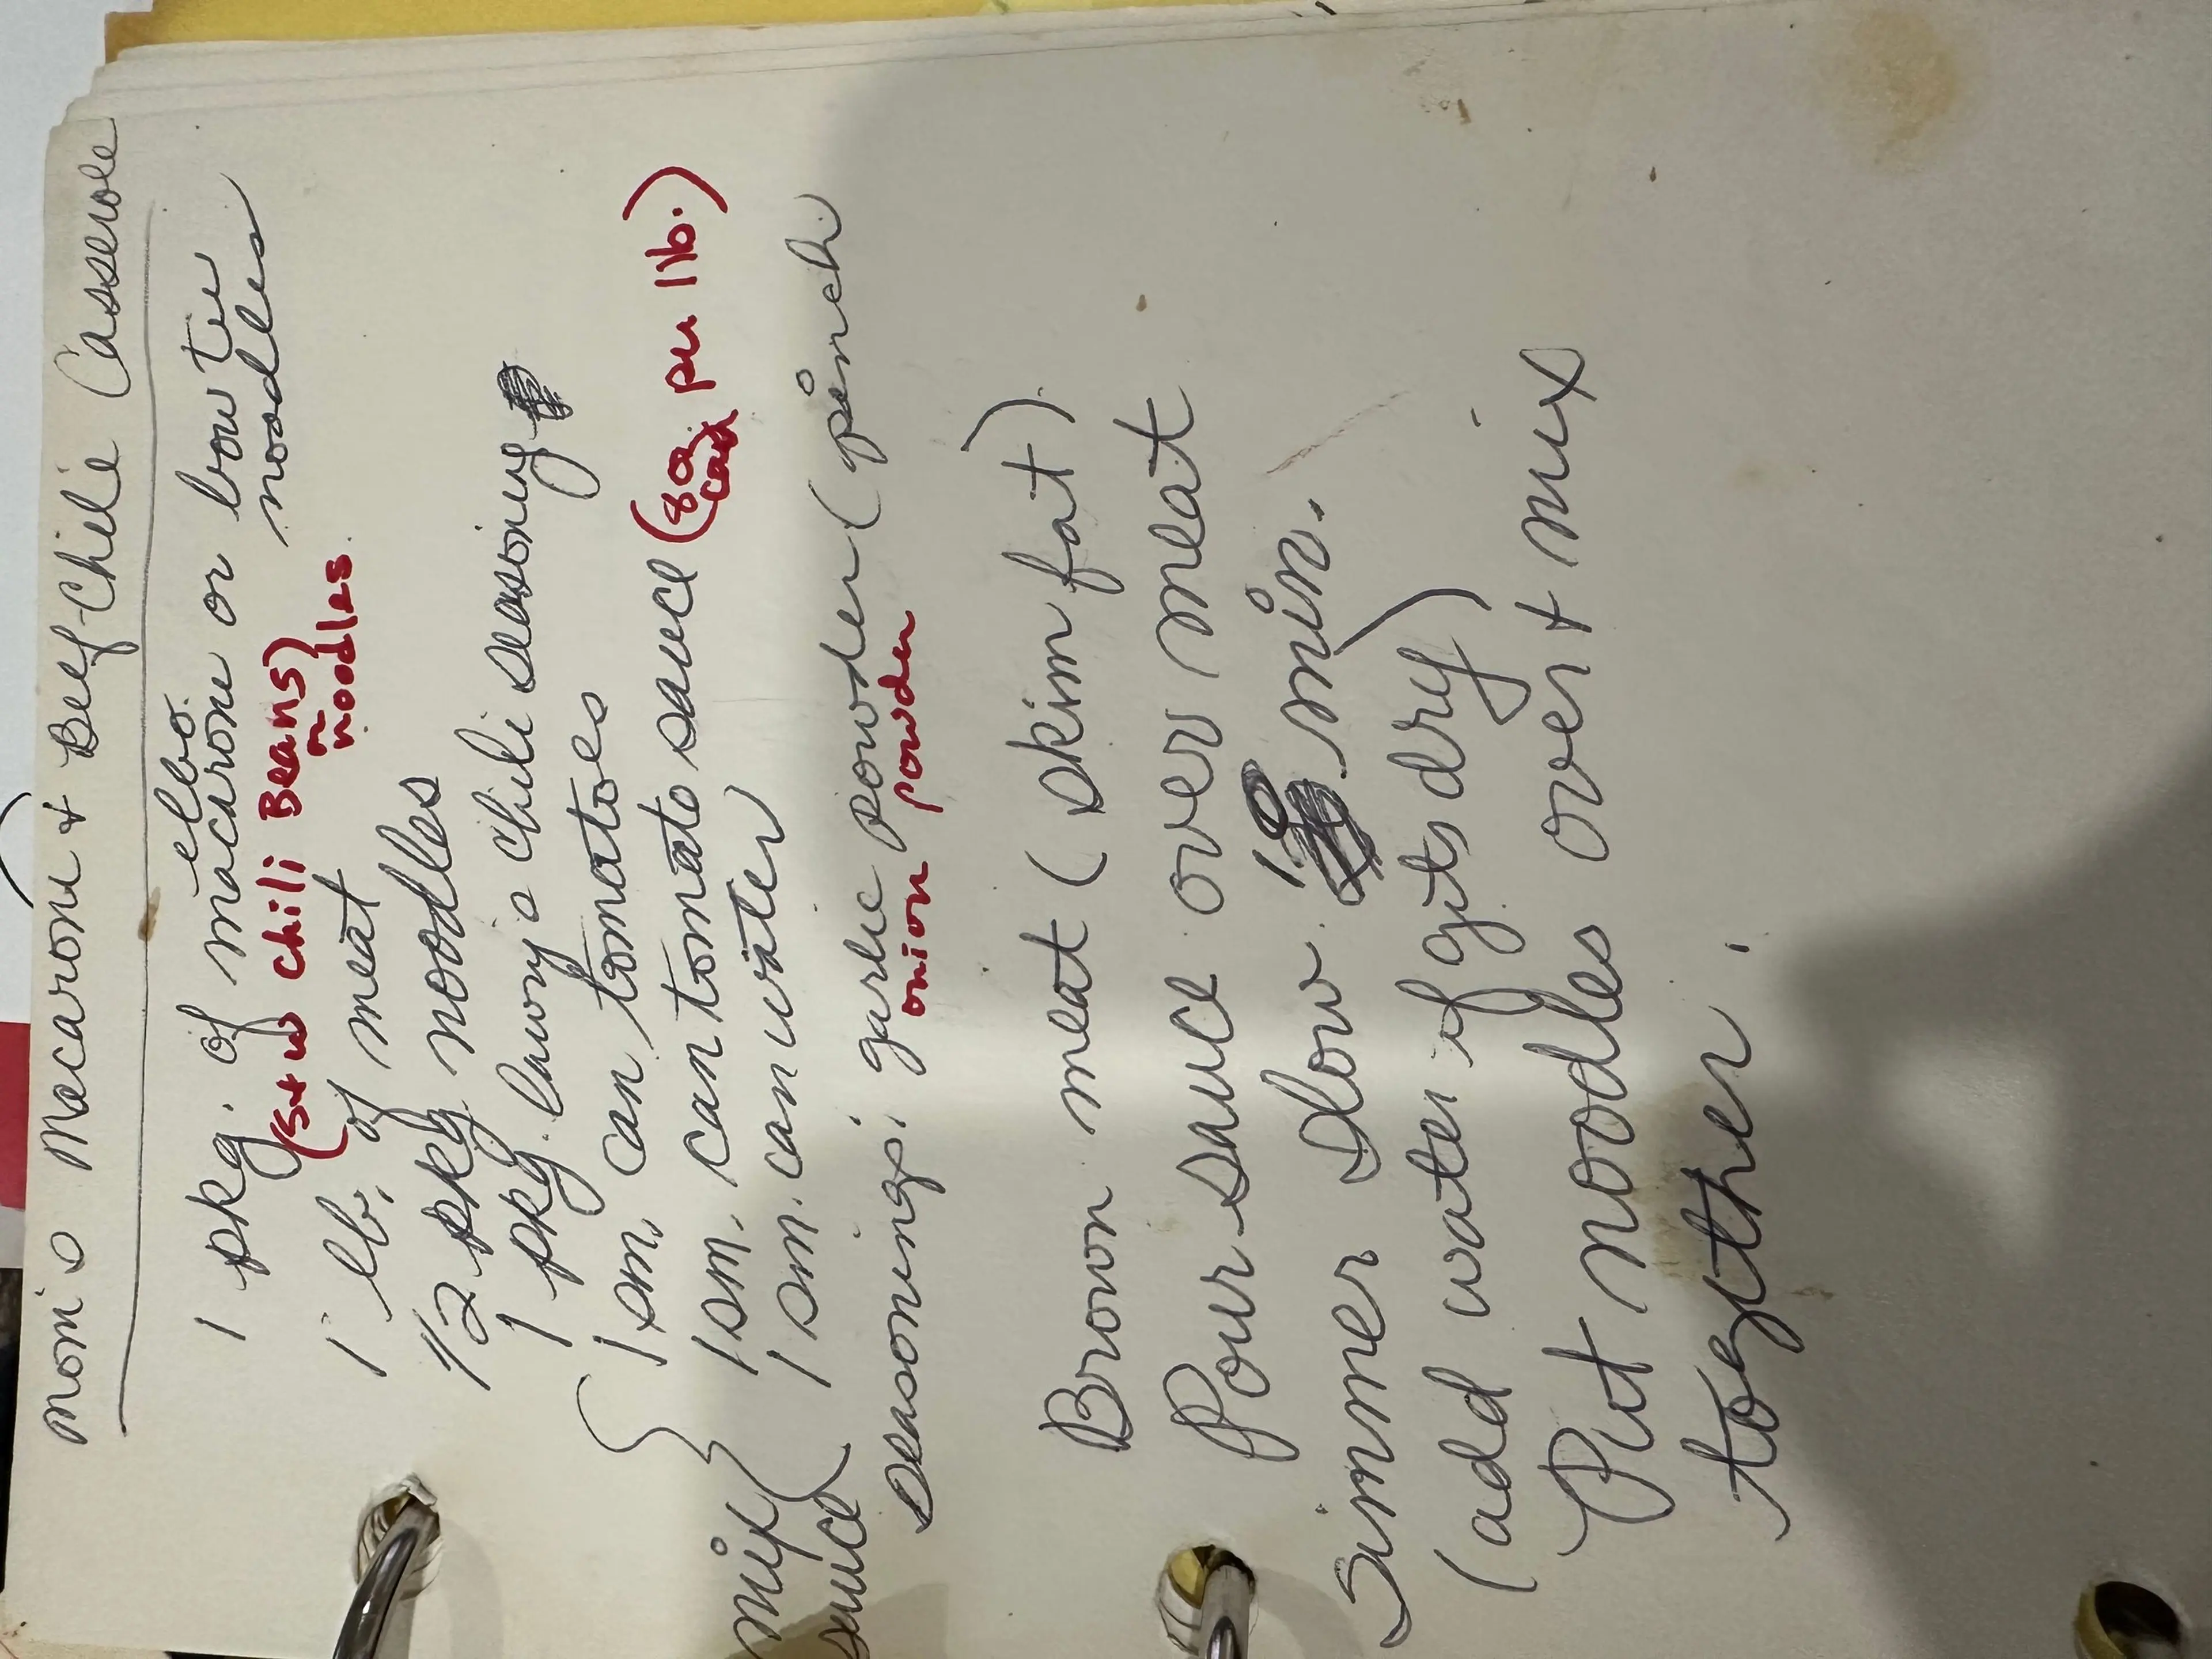 Mom's Macaroni & Beef-Chili Casserole
1 pkg. of elbo macaroni or bow tie noodles
(S+W chili Beans) m noodles
1 lb. of meat
1/2 pkg noodles
1 pkg. lawry's chili seasoning
1 sm. can tomatoes
1 sm. can tomato sauce (8 oz can per 1 lb.)
1 sm. can water
mix sauce
seasonings: garlic powder (pinch
onion powder
Brown meat (skim fat)
Pour sauce over meat
Simmer slow 10 min.
(add water if gits dry)
Put noodles over + mix
together.